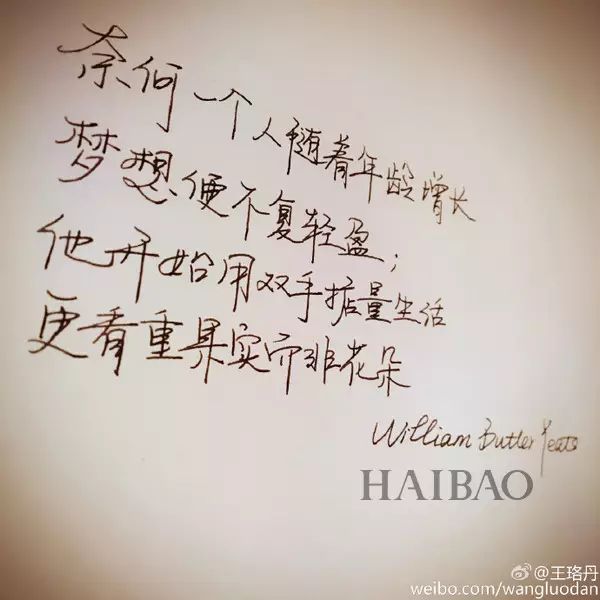 奈何一个人随着年龄增长
梦想便不复轻盈；
他开始用双手掂量生活
更看重果实而非花朵
William Butler Yeats
HAIBAO
@王珞丹
weibo.com/wangluodan